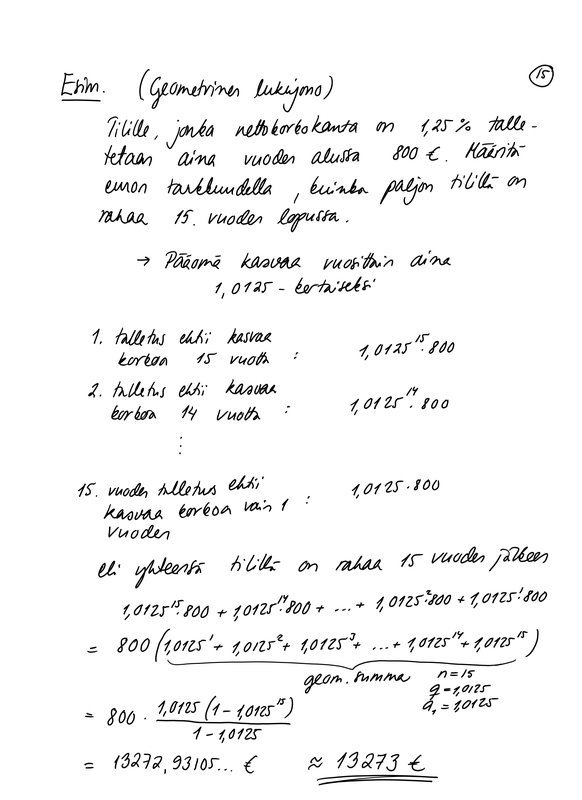 15
Esim. (Geometrinen lukujono)
Tilille, jonka nettokorkokanta on 1,25 % talle-
tetaan aina vuoden alussa 800 €. Määritä
euron tarkkuudella, kuinka paljon tilillä on
rahaa 15. vuoden lopussa.
→ Pääoma kasvaa vuosittain aina
1,0125 - kertaiseksi
1. talletus ehtii kasvaa
korkoa 15 vuotta : 1,0125^15 · 800
2. talletus ehtii kasvaa
korkoa 14 vuotta : 1,0125^14 · 800
⋮
15. vuoden talletus ehtii
kasvaa korkoa vain 1 : 1,0125 · 800
vuoden
eli yhteensä tilillä on rahaa 15 vuoden jälkeen
1,0125^15 · 800 + 1,0125^14 · 800 + ... + 1,0125^2 · 800 + 1,0125^1 · 800
= 800 (1,0125^1 + 1,0125^2 + 1,0125^3 + ... + 1,0125^14 + 1,0125^15)
geom. summa n = 15
q = 1,0125
a₁ = 1,0125
= 800 · 1,0125 (1 - 1,0125^15) / 1 - 1,0125
= 13272,93105... € ≈ 13273 €